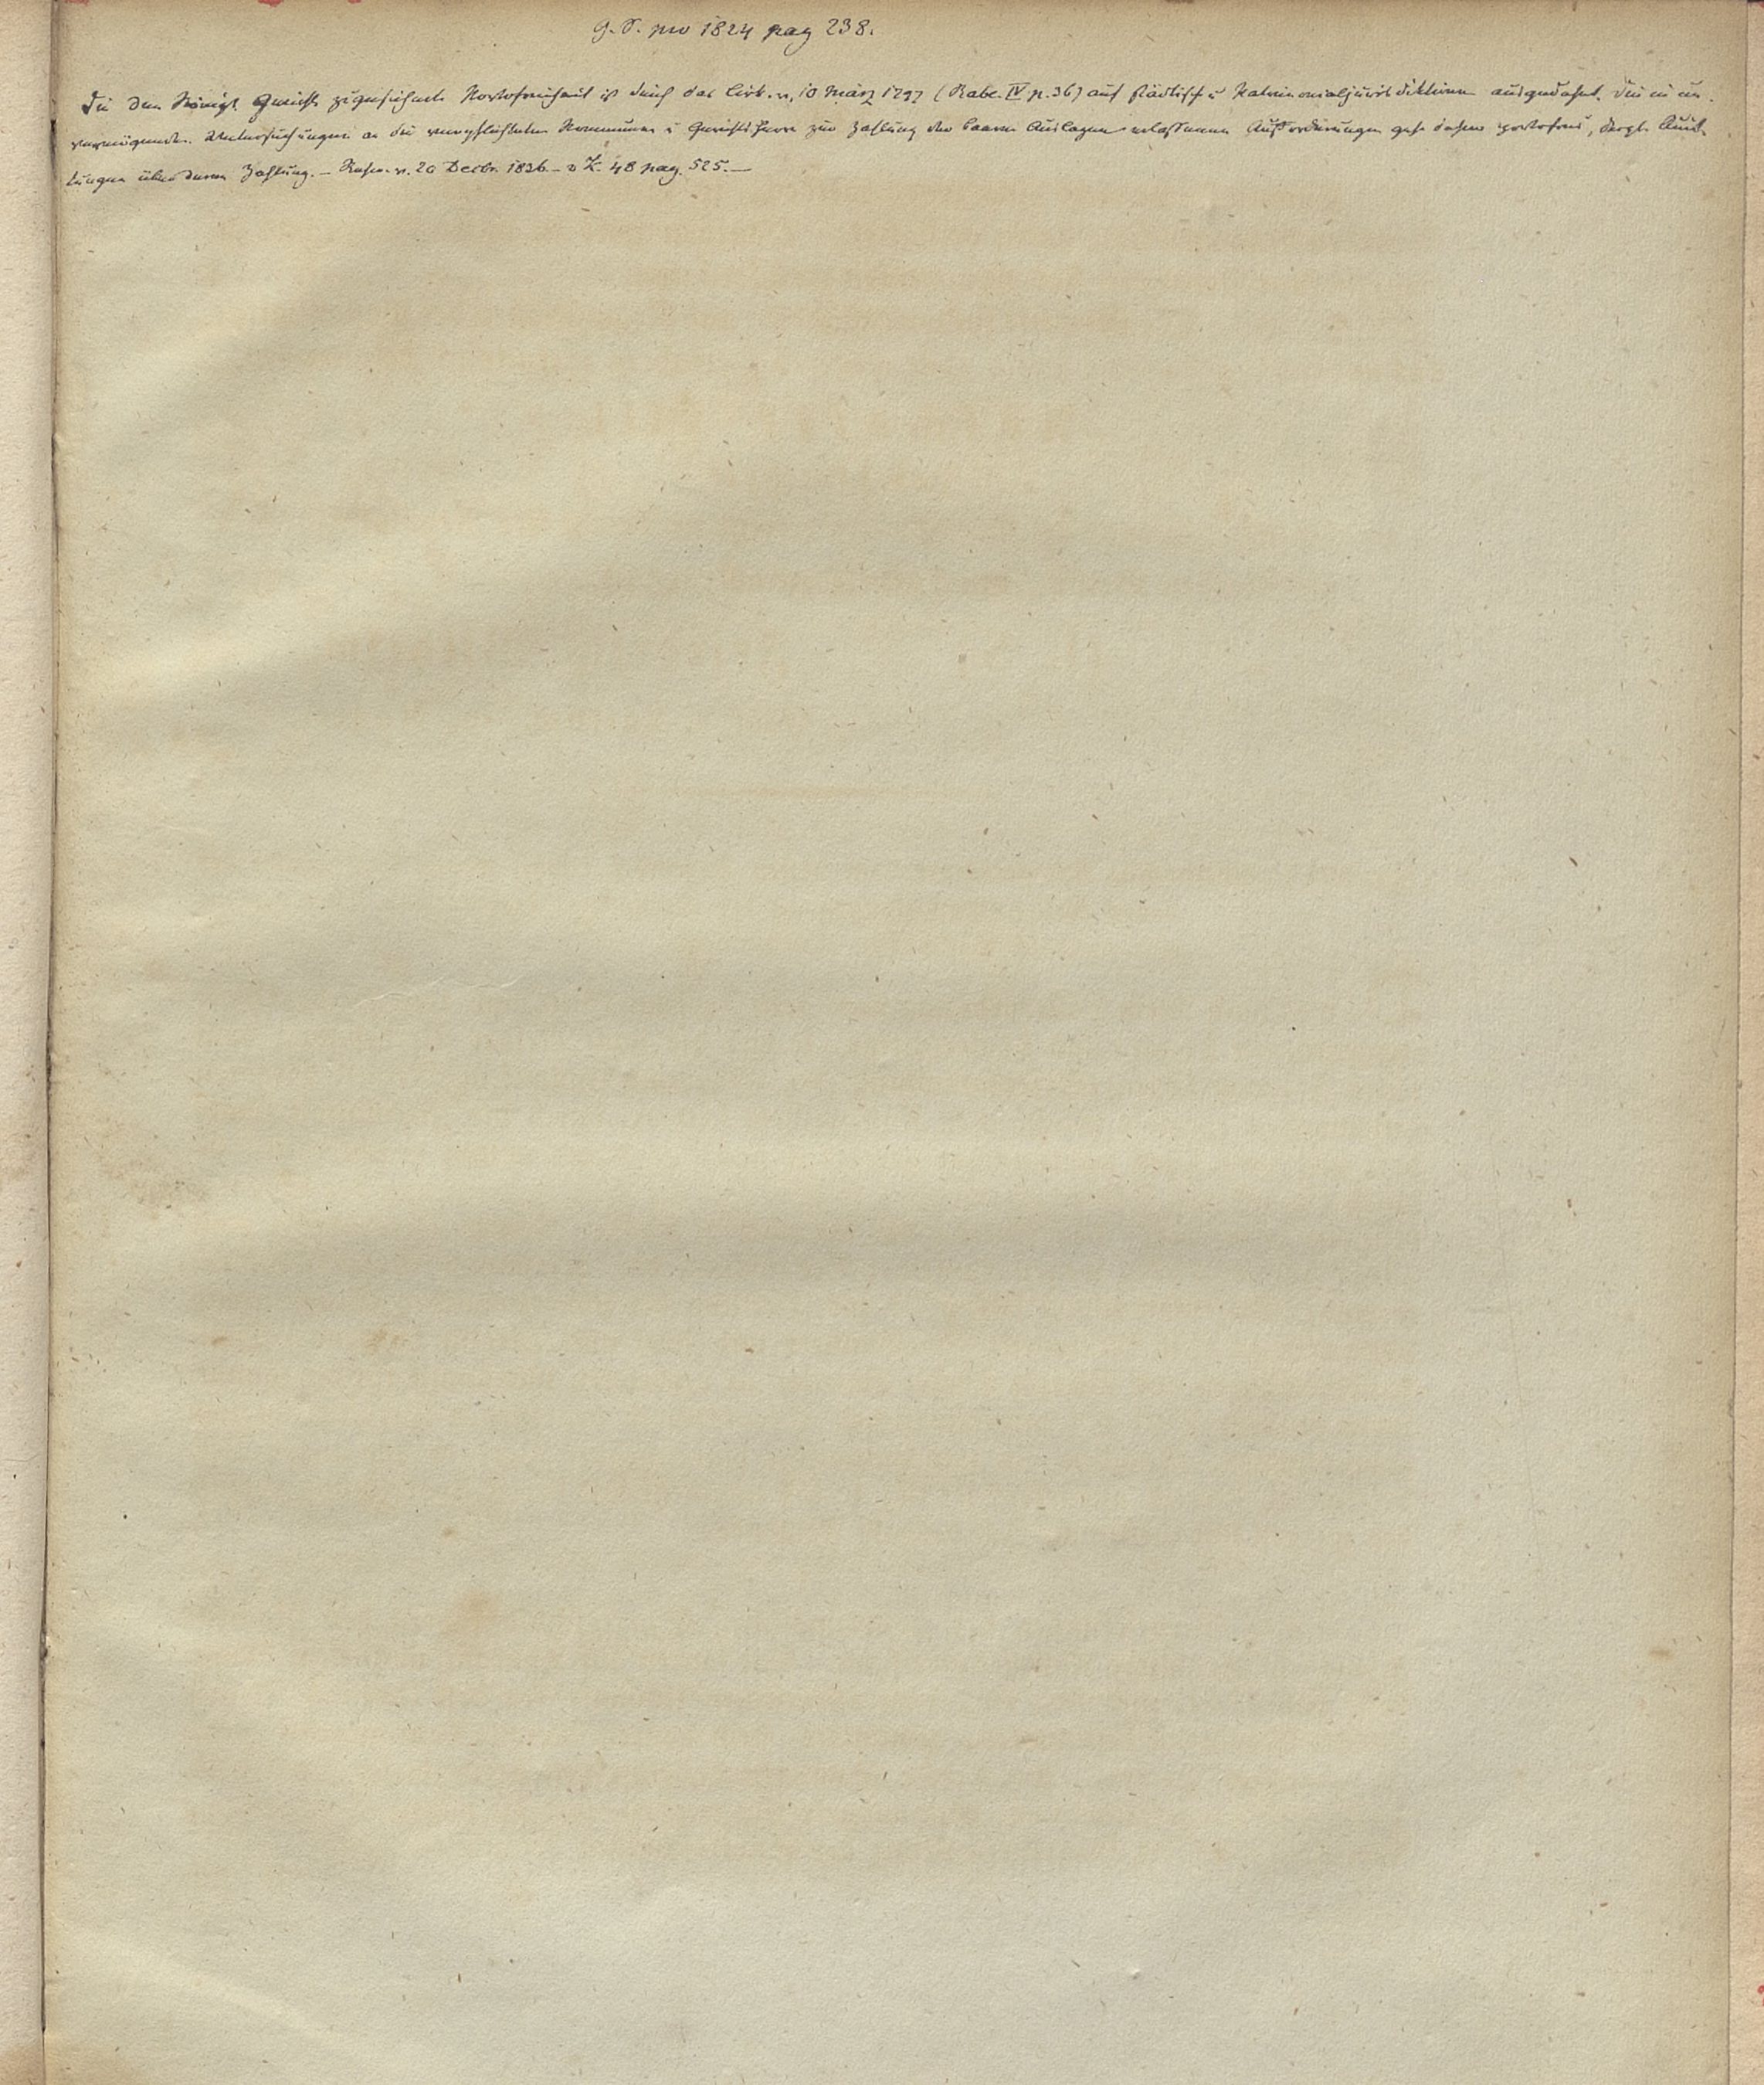 G. S. pro 1824 pag 238.
Die den Königl Gericht zugesicherte Portofreiheit ist durch das Cirk. v. 10 März 1797 (Rabe. IV p. 36) auf städtisch u Patrimonialjurisdiktionen ausgedehnt. Die in un-
vermögenden Untersuchungen an die verpflichteten Kommunen u Gerichtsherrn zur Zahlung der baaren Auslagen erlassenen Aufforderungen gehn daher portofrei, desgl. Quit-
tungen über deren Zahlung. – Rescr. v. 20 Decbr. 1836 – v K. 48 pag. 525. –